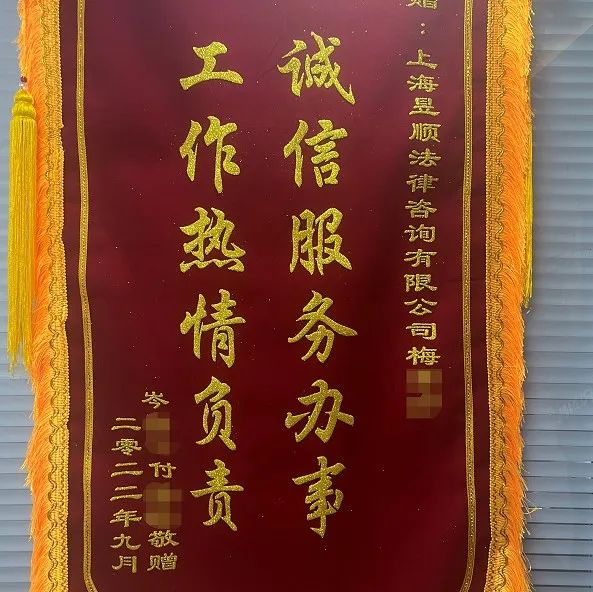 赠：上海昱顺法律咨询有限公司梅
诚信服务办事
工作热情负责
岑 付 敬赠
二零二二年九月